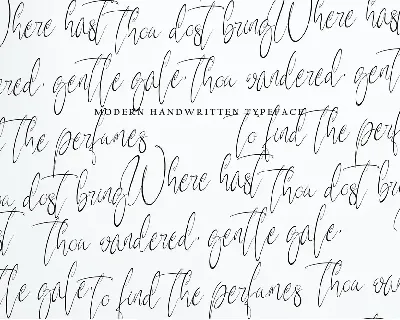 Where hast thou dost bring Where hast
ered. gentle gale. Thou wandered. gent
MODERN HANDWRITTEN TYPEFACE
d the perfumes To find the perf
ou dost bring Where hast thou dost br
st Thou wandered. gentle gale.
tle gale. To find the perfumes Thou wa